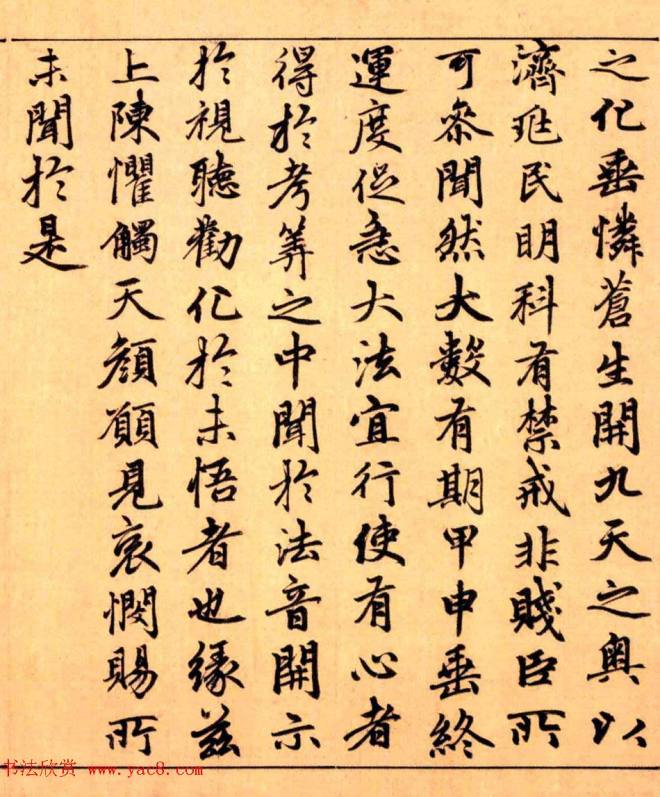 之化垂憐蒼生開九天之奧以
濟兆民明科有禁戒非賤臣所
可參聞然大數有期甲申垂終
運度促急大法宜行使有心者
得於考筭之中聞於法音開示
於視聽勸化於未悟者也緣茲
上陳懼觸天顏願見哀憫賜所
未聞於是
书法欣赏 www.yac8.com